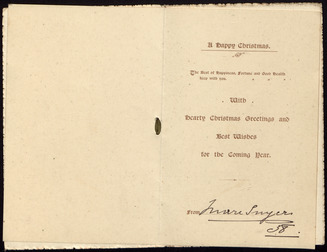 A Happy Christmas.
The Best of Happiness, Fortune and Good Health
stay with you.
With
Hearty Christmas Greetings and
Best Wishes
for the Coming Year.
From